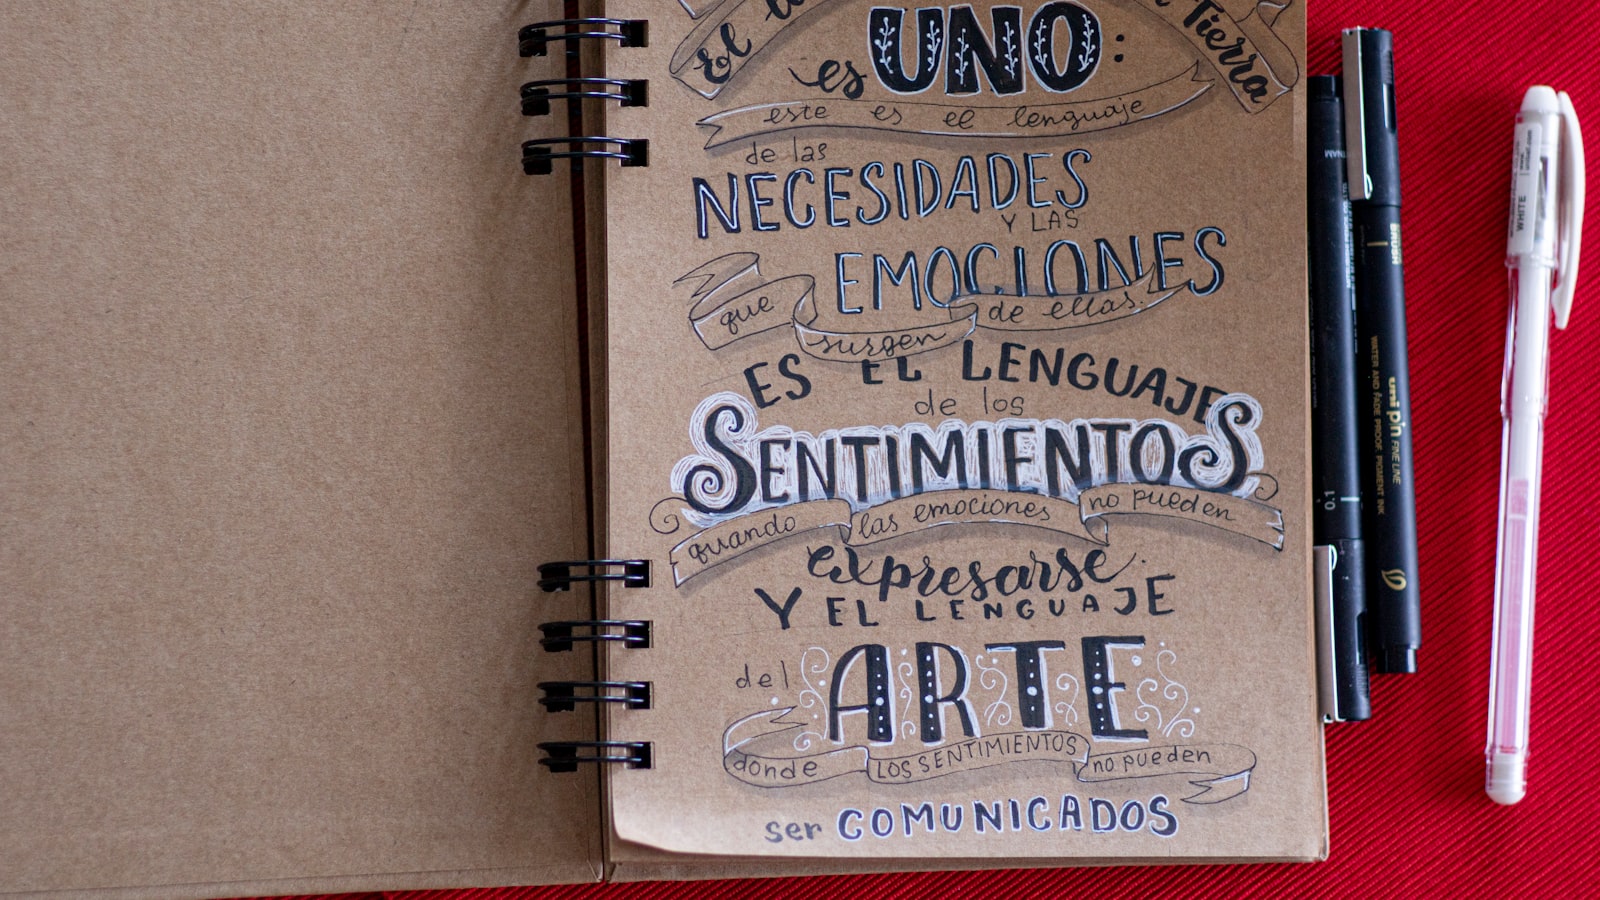 El
Tierra
es UNO:
este es el lenguaje
de las
NECESIDADES
Y LAS
EMOCIONES
que surgen de ellas.
ES EL LENGUAJE
de los
SENTIMIENTOS
quando las emociones no pueden
expresarse.
Y EL LENGUAJE
del ARTE
donde LOS SENTIMIENTOS no pueden
ser COMUNICADOS
BRUSH
uni pin FINE LINE
WATER AND FADE PROOF, PIGMENT INK
0.1
WHITE